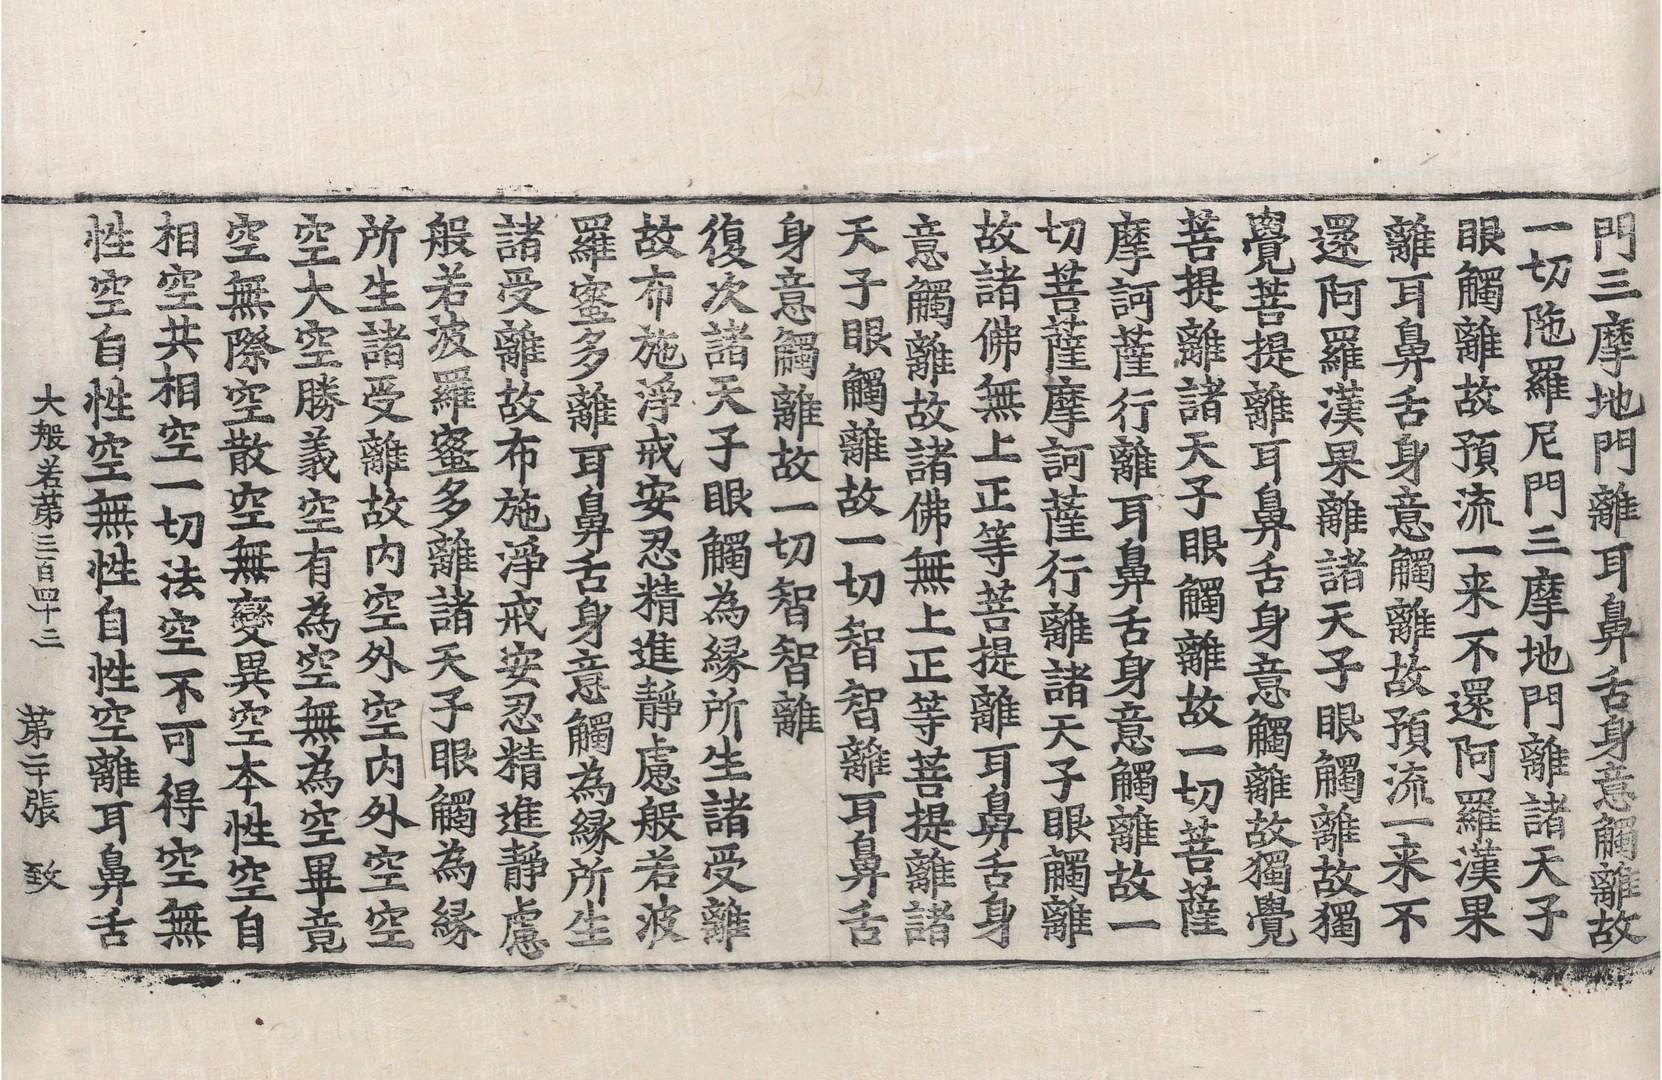 門三摩地門離耳鼻舌身意觸離故
一切陁羅尼門三摩地門離諸天子
眼觸離故預流一来不還阿羅漢果
離耳鼻舌身意觸離故預流一来不
還阿羅漢果離諸天子眼觸離故獨
覺菩提離耳鼻舌身意觸離故獨覺
菩提離諸天子眼觸離故一切菩薩
摩訶薩行離耳鼻舌身意觸離故一
切菩薩摩訶薩行離諸天子眼觸離
故諸佛無上正等菩提離耳鼻舌身
意觸離故諸佛無上正等菩提離諸
天子眼觸離故一切智智離耳鼻舌
身意觸離故一切智智離
復次諸天子眼觸為緣所生諸受離
故布施淨戒安忍精進靜慮般若波
羅蜜多離耳鼻舌身意觸為緣所生
諸受離故布施淨戒安忍精進靜慮
般若波羅蜜多離諸天子眼觸為緣
所生諸受離故内空外空内外空空
空大空勝義空有為空無為空畢竟
空無際空散空無變異空本性空自
相空共相空一切法空不可得空無
性空自性空無性自性空離耳鼻舌
大般若苐三百四十三 苐二十張 致